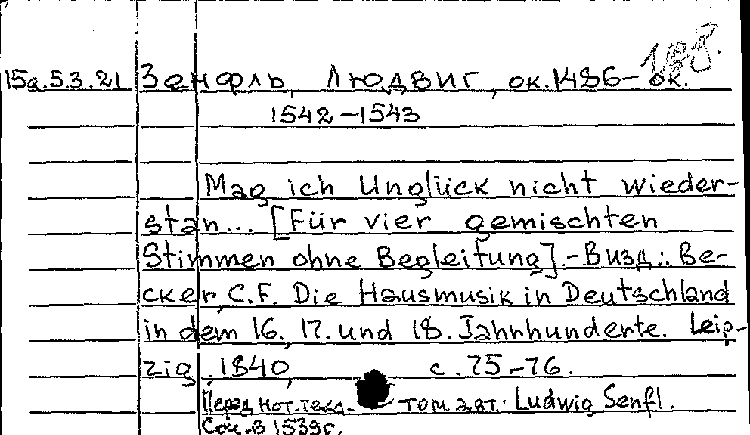 188.
15а.5.3.21 Зенфль, Людвиг, ок.1486– ок.
1542–1543
Mag ich Unglück nicht wieder-
stan... [Für vier gemischten
Stimmen ohne Begleitung].-В изд.: Be-
cker, C.F. Die Hausmusik in Deutschland
in dem 16., 17. und 18. Jahrhunderte. Leip-
zig, 1840, с. 75–76.
Перед нот. текст. авт: Ludwig Senfl.
Соч. в 1539г.